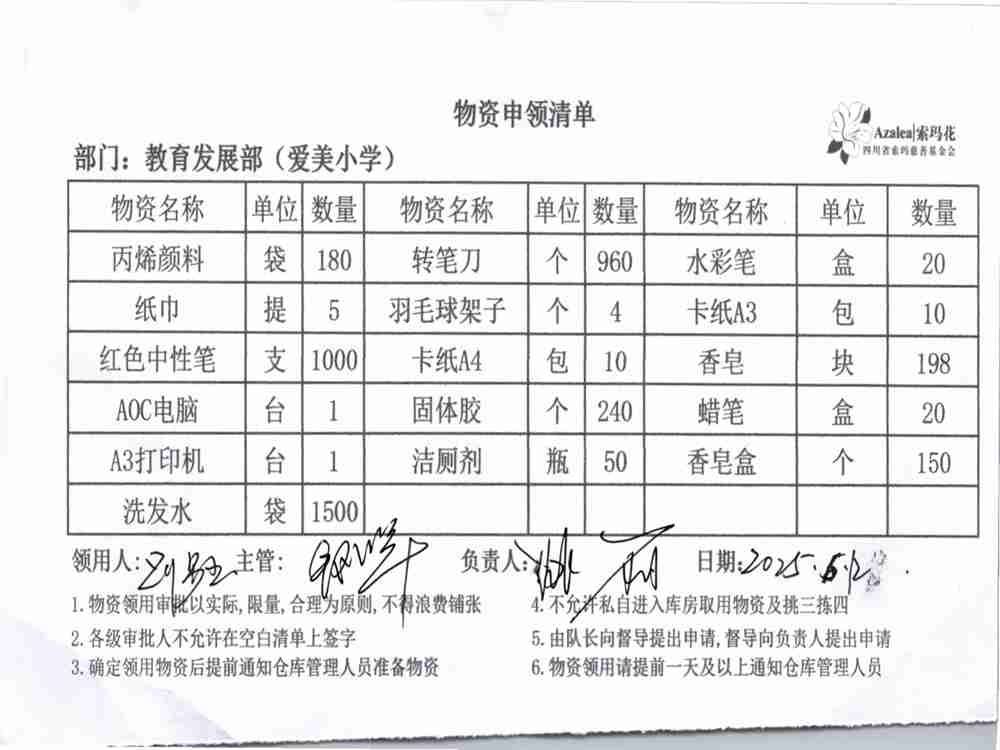 物资申领清单
Azalea|索玛花
四川省索玛慈善基金会
部门：教育发展部（爱美小学）
物资名称 单位 数量 物资名称 单位 数量 物资名称 单位 数量
丙烯颜料 袋 180 转笔刀 个 960 水彩笔 盒 20
纸巾 提 5 羽毛球架子 个 4 卡纸A3 包 10
红色中性笔 支 1000 卡纸A4 包 10 香皂 块 198
AOC电脑 台 1 固体胶 个 240 蜡笔 盒 20
A3打印机 台 1 洁厕剂 瓶 50 香皂盒 个 150
洗发水 袋 1500
领用人： 主管： 负责人： 日期：2025.6.12
1.物资领用审批以实际,限量,合理为原则,不得浪费铺张
2.各级审批人不允许在空白清单上签字
3.确定领用物资后提前通知仓库管理人员准备物资
4.不允许私自进入库房取用物资及挑三拣四
5.由队长向督导提出申请,督导向负责人提出申请
6.物资领用请提前一天及以上通知仓库管理人员